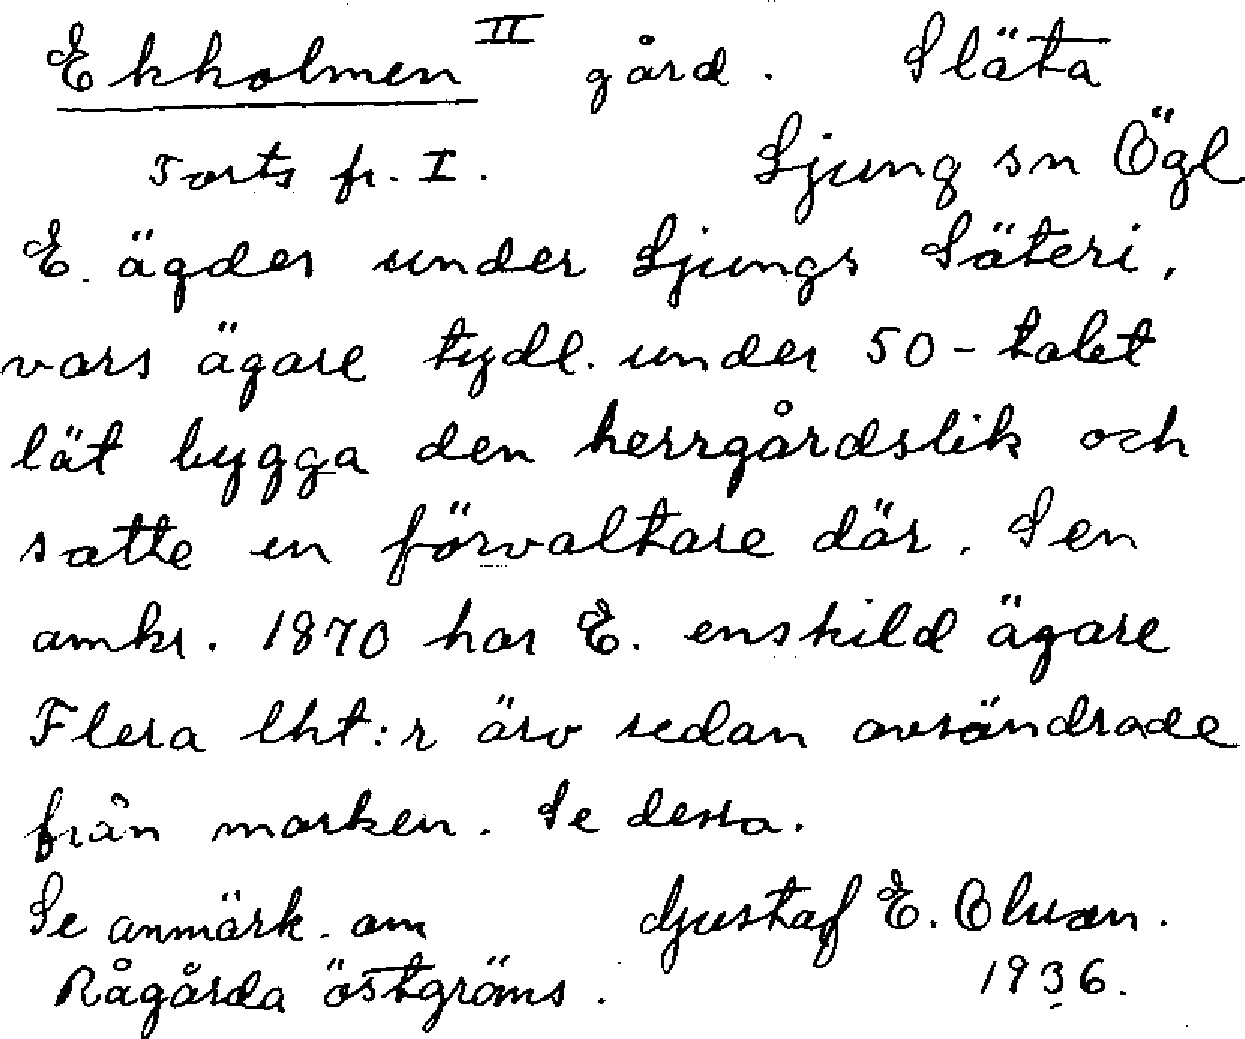 Ekholmen II gård. Släta
Forts fr. I. Ljung sn Ögl
E. ägdes under Ljungs Säteri,
vars ägare tydl. under 50-talet
lät bygga den herrgårdslik och
satte en förvaltare där. Sen
omkr. 1870 har E. enskild ägare
Flera lht:r äro sedan avsöndrade
från marken. Se dessa.
Se anmärk. om Gustaf E. Olsson.
Rågårda östgräns. 1936.